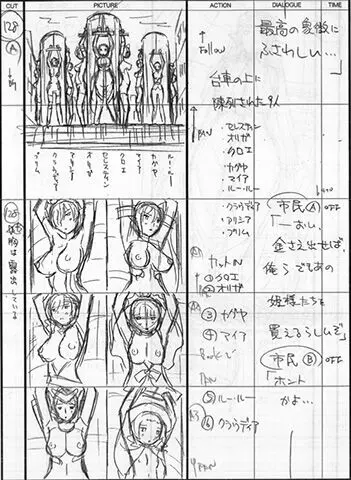 CUT
PICTURE
ACTION
DIALOGUE
TIME
128
A
プリム
アリシア
クラウディア
マイア
オリガ
セレスティン
クロエ
カグヤ
ルー・ルー
Follow
台車の上に
陳列された9人
PAN
・セレスティン
・オリガ
・クロエ
・カグヤ
・マイア
・ルー・ルー
・クラウディア
・アリシア
・プリム
最高の象徴に
ふさわしい…
」
市民A OFF
「一おい、
金さえ出せば、
俺らでもあの
姫様たちを
買えるらしいぞ」
市民B OFF
「ホント
かよ…
胸は露出している
カットIN
①クロエ
②オリガ
③カグヤ
④マイア
Bookで
PAN
⑤ルー・ルー
⑥クラウディア
PAN